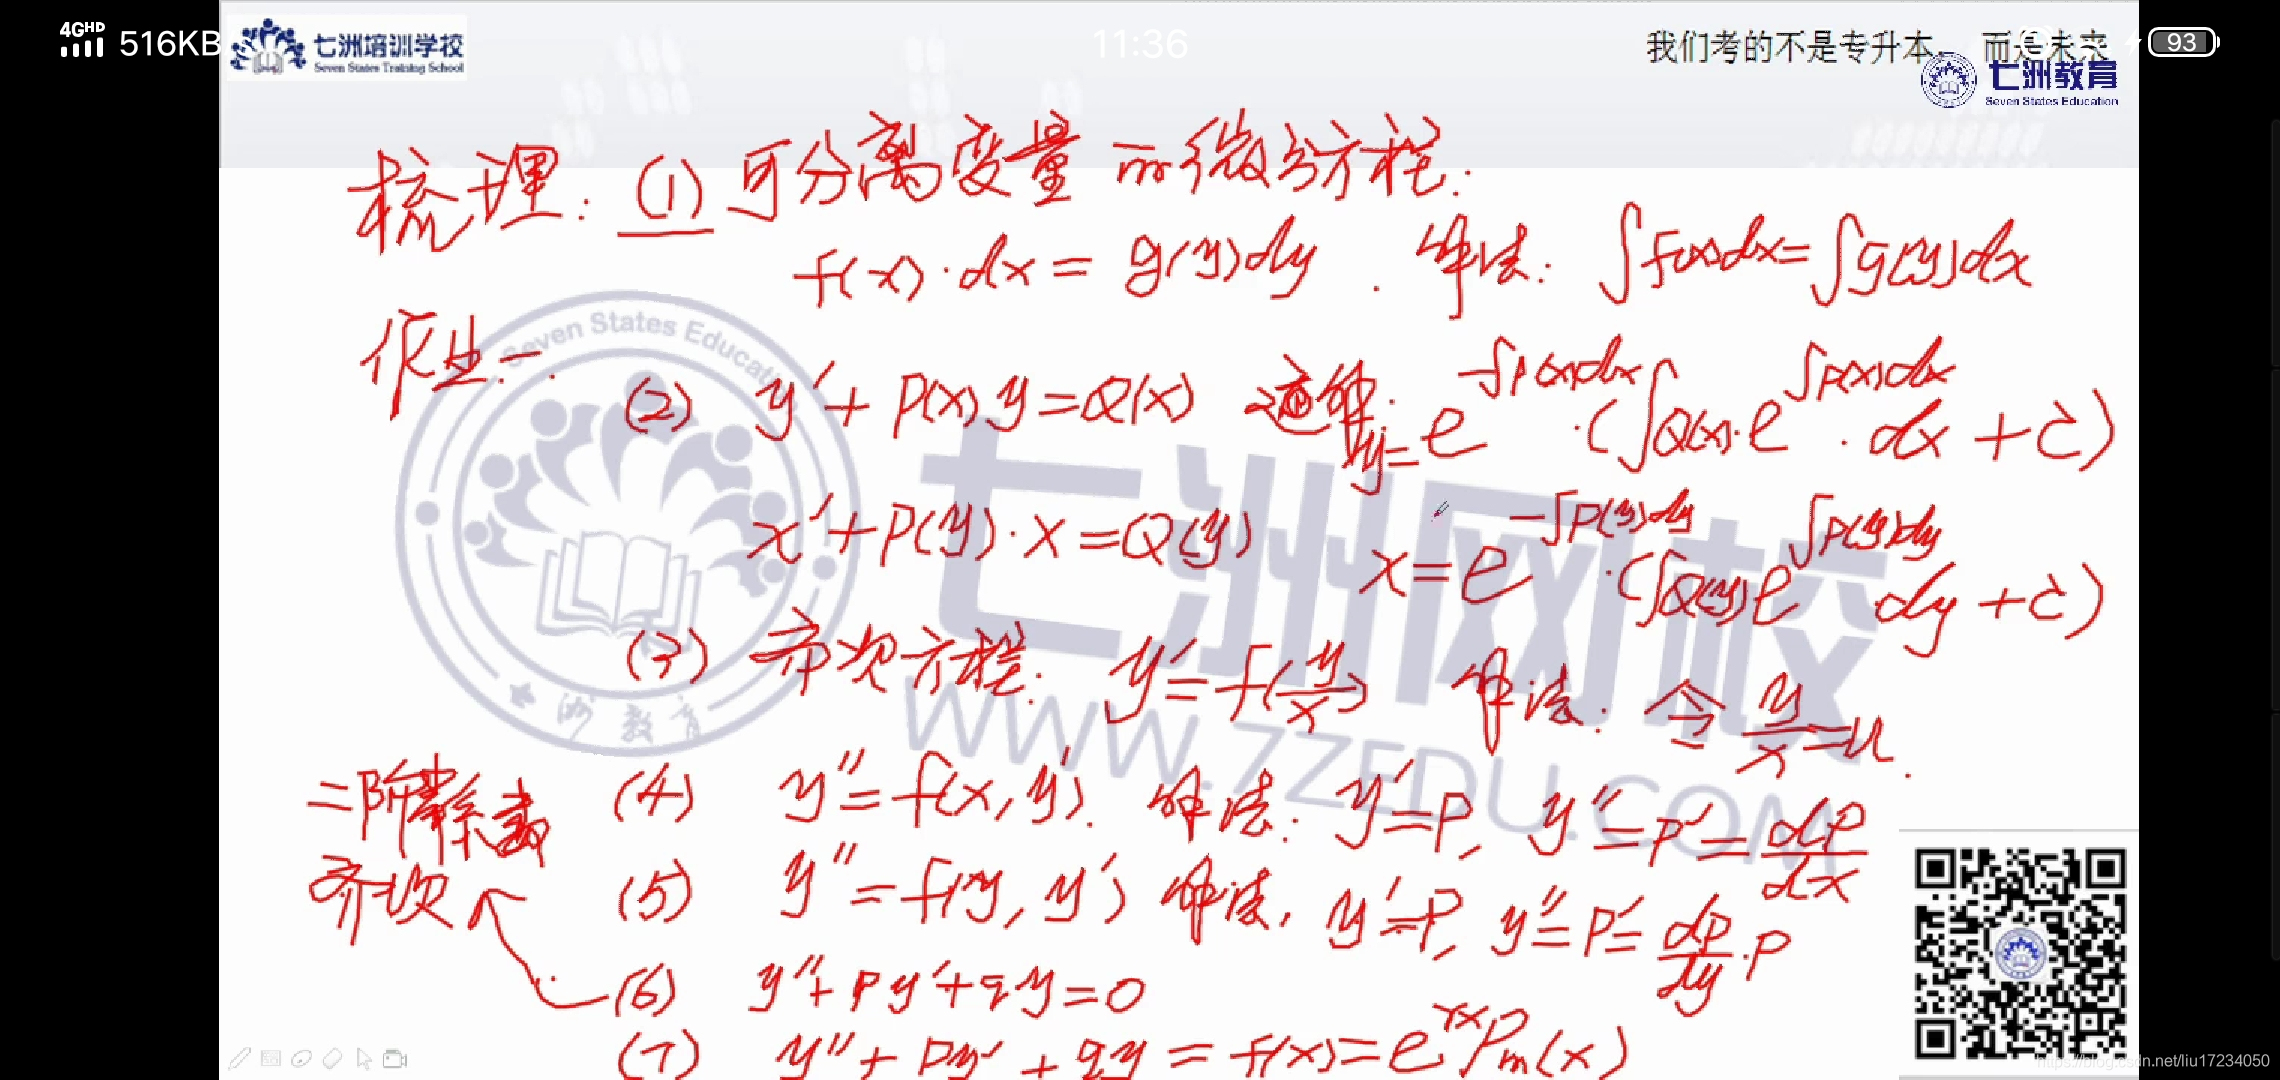 4GHD 516KB 11:36 93
七洲培训学校
Seven States Training School
我们考的不是专升本， 而是未来
七洲教育
Seven States Education
梳理: (1) 可分离变量的微分方程:
f(x)·dx = g(y)dy . 解法: ∫f(x)dx=∫g(y)dx
作业一
(2) y′+P(x)y=Q(x) 通解: y=e^{-∫P(x)dx}·(∫Q(x)·e^{∫P(x)dx}·dx+C)
x′+P(y)·x=Q(y) x=e^{-∫P(y)dy}·(∫Q(y)e^{∫P(y)dy}dy+C)
(3) 齐次方程. y′=f(y/x) 解法: 令 y/x=u.
二阶常系数
齐次
(4) y″=f(x,y′). 解法: y′=P, y″=P′=dP/dx
(5) y″=f(y,y′) 解法, y′=P, y″=P′=dP/dy·P
(6) y″+py′+qy=0
(7) y″+py′+qy=f(x)=e^{rx}Pm(x)
Seven States Educat
洲教育
七洲网校
WWW.7ZEDU.COM
https://blog.csdn.net/liu17234050